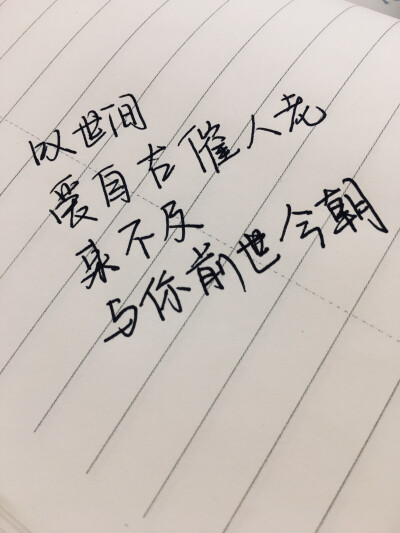 叹世间
爱自古催人老
来不及
与你前世今朝